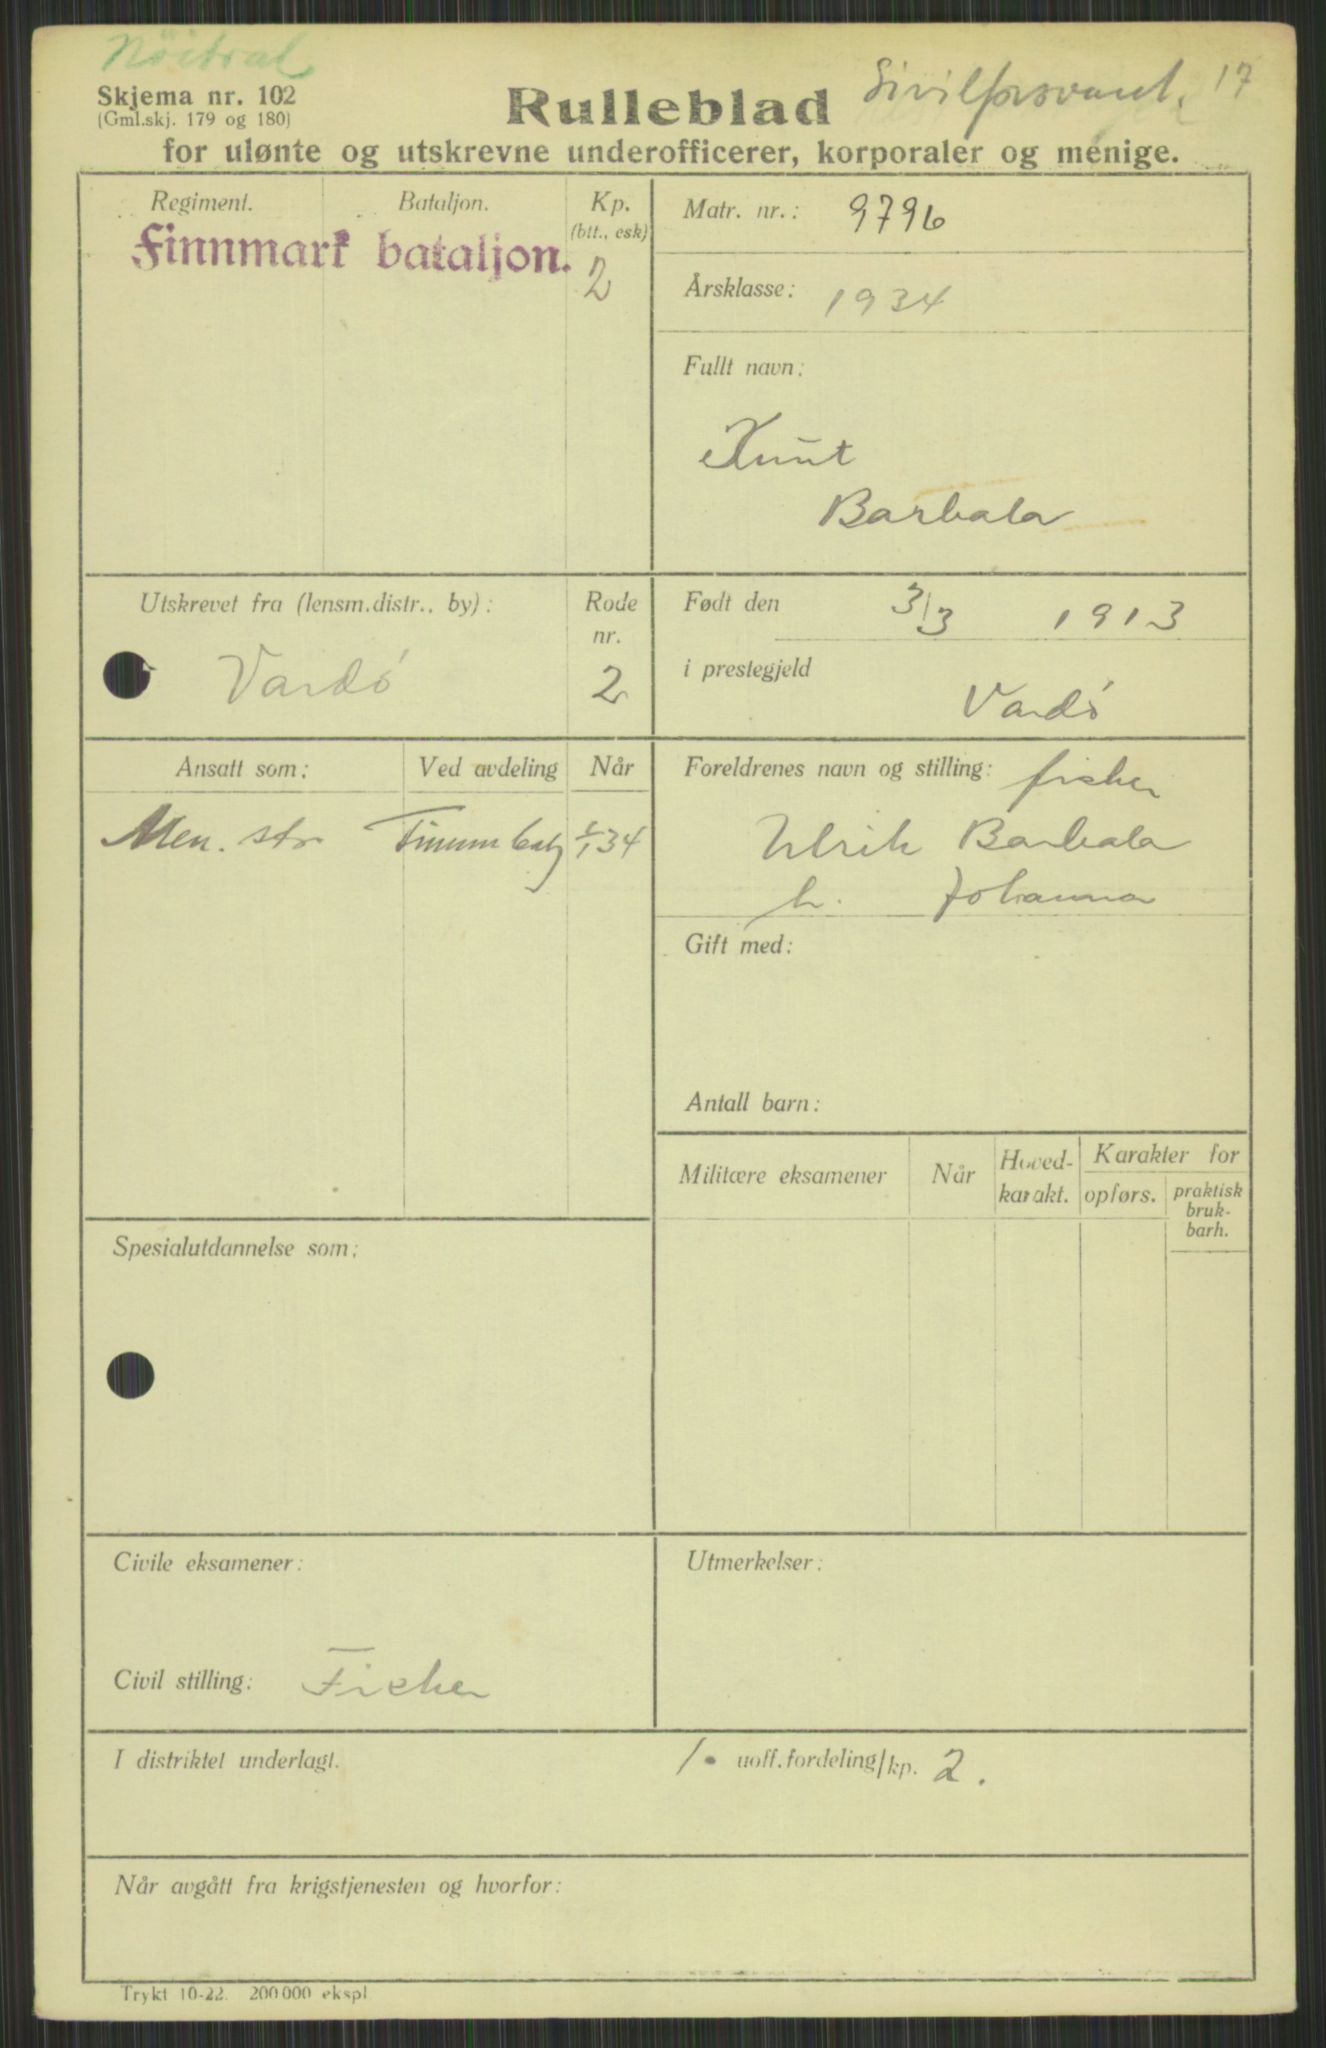 Nöitral
Skjema nr. 102
(Gml.skj. 179 og 180)
Rulleblad
Sivilforsvaret. 17
for ulønte og utskrevne underofficerer, korporaler og menige.
Regiment. Bataljon. Kp.
(btt., esk)
Finnmark bataljon. 2
Matr. nr.: 9796
Årsklasse: 1934
Fullt navn:
Knut
Barbala
Utskrevet fra (lensm.distr., by): Rode nr.
Vardö 2
Født den 3/3 1913
i prestegjeld
Vardö
Ansatt som: Ved avdeling Når
Men. str. Finnm batj 1/1 34
Foreldrenes navn og stilling: fisker
Ulrik Barbala
h. Johanna
Gift med:
Antall barn:
Militære eksamener Når Hoved-karakt. Karakter for
opførs. praktisk
bruk-
barh.
Spesialutdannelse som:
Civile eksamener:
Utmerkelser:
Civil stilling: Fisker
I distriktet underlagt. 1. uoff.fordeling/kp. 2.
Når avgått fra krigstjenesten og hvorfor:
Trykt 10-22. 200 000 ekspl